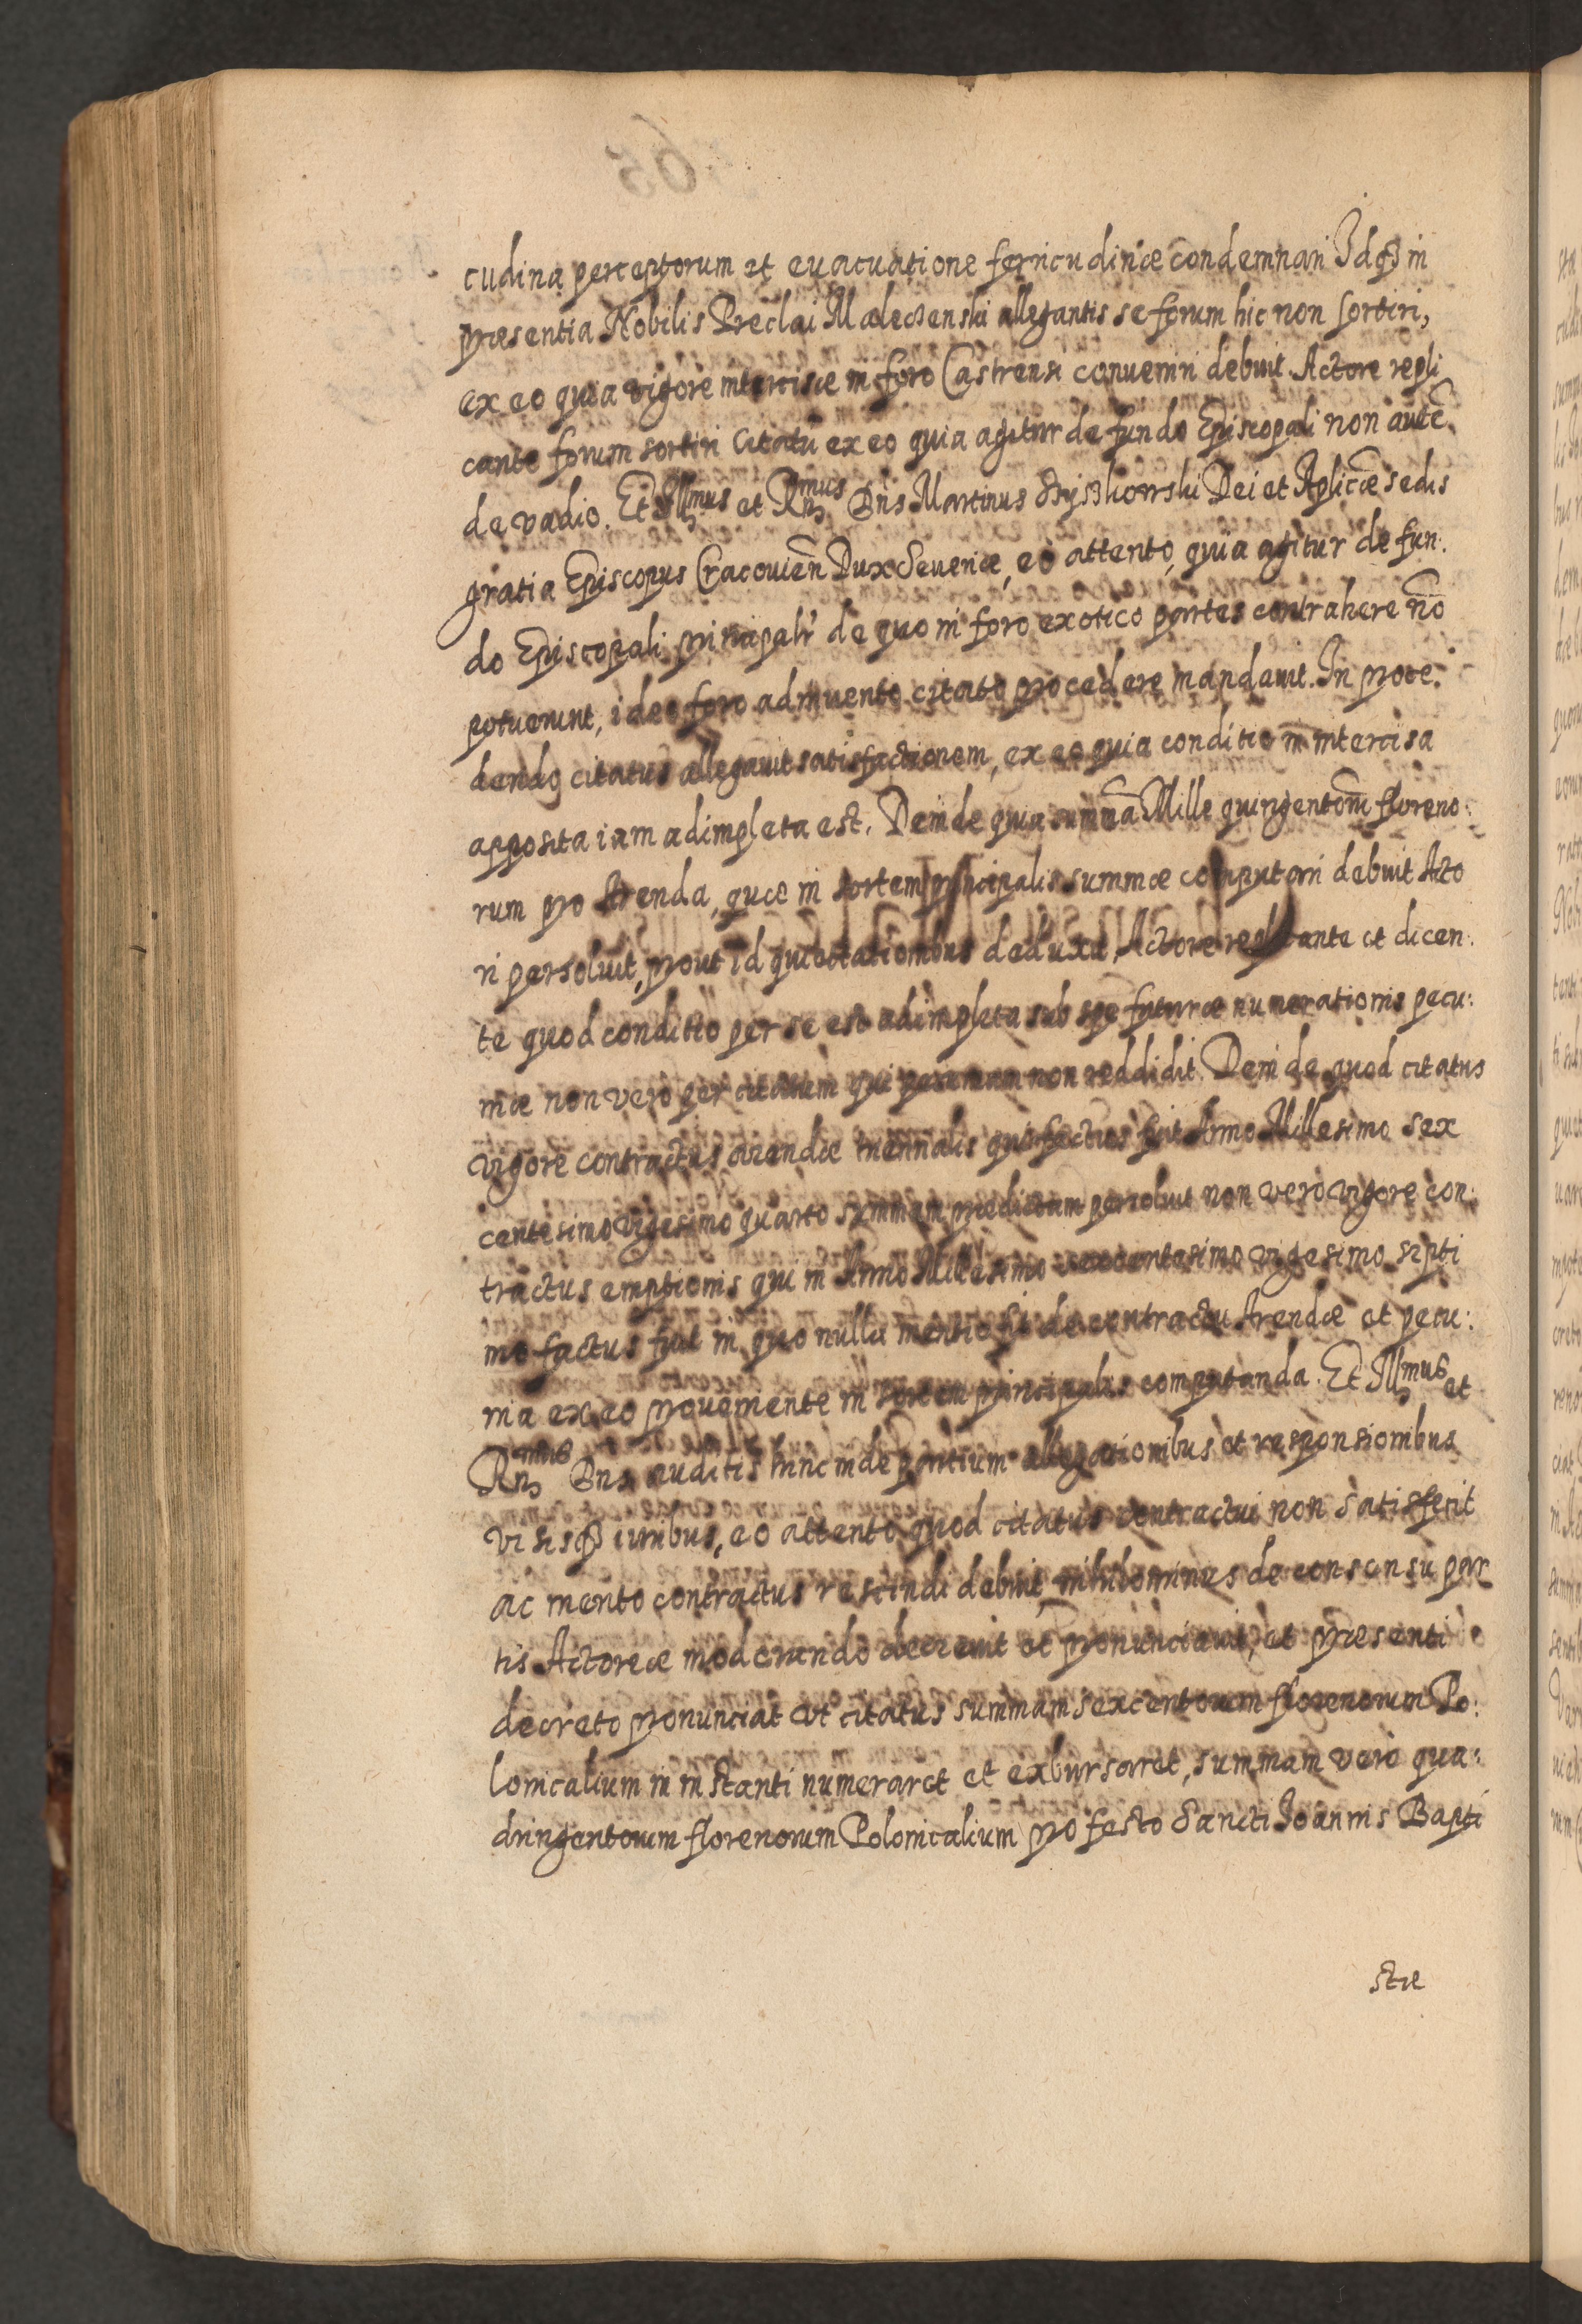 cudina perceptorum et evacuatione ferricudinæ condemnari Idq3 in
præsentia Nobilis Preclai Malechenski allegantis se forum hic non sortiri,
ex eo quia vigore intercisæ in foro Castrensi conveniri debuit. Actore repli
cante forum sortiri Citatū ex eo quia agitur de fundo Episcopali non autē
de vadio. Et Illmus et Rmus Dns Martinus Szyszkowski Dei et Aplicæ sedis
gratia Episcopus Cracovien̄ Dux Severiæ, eo attento, quia agitur de fun:
do Episcopali principalr̄ de quo in foro exotico partes contrahere nō
potuerunt, ideo foro adinvento citato procedere mandavit. In proce:
dendo citatus allegavit satisfactionem, ex eo quia conditio in intercisa
apposita iam adimpleta est. Deinde quia summā Mille quingentorū floreno:
rum pro Arenda, quæ in sortem principalis summæ computari debuit Acto
ri persoluit, prout id quietationibus deduxit, Actore replicante et dicen:
te quod conditio per se est adimpleta sub spe futuræ numerationis pecu:
niæ non vero per citatum qui pecuniam non reddidit. Deinde quod citatus
vigore contractus arendæ triennalis qui factus fuit Anno Millesimo sex
centesimo vigesimo quarto summam prædictam persoluit non vero vigore con:
tractus emptionis qui in Anno Millesimo sexcentesimo vigesimo septi
mo factus fuit in quo nulla mentio fit de contractu Arendæ et pecu:
nia ex eo proveniente in sortem principalis computanda. Et Illmus et
Rmus Dns auditis hinc inde partium allegationibus et responsionibus
visisq3 iuribus, eo attento quod citatus contractui non satisfecit
ac merito contractus rescindi debuit, nihilominus de consensu par
tis Actoreæ moderando decrevit et pronunciavit, et præsenti
decreto pronunciat vt citatus summam sexcentorum florenorum Po:
lonicalium in instanti numeraret et exbursaret, summam vero qua:
dringentorum florenorum Polonicalium pro festo Sancti Joannis Bapti
stæ